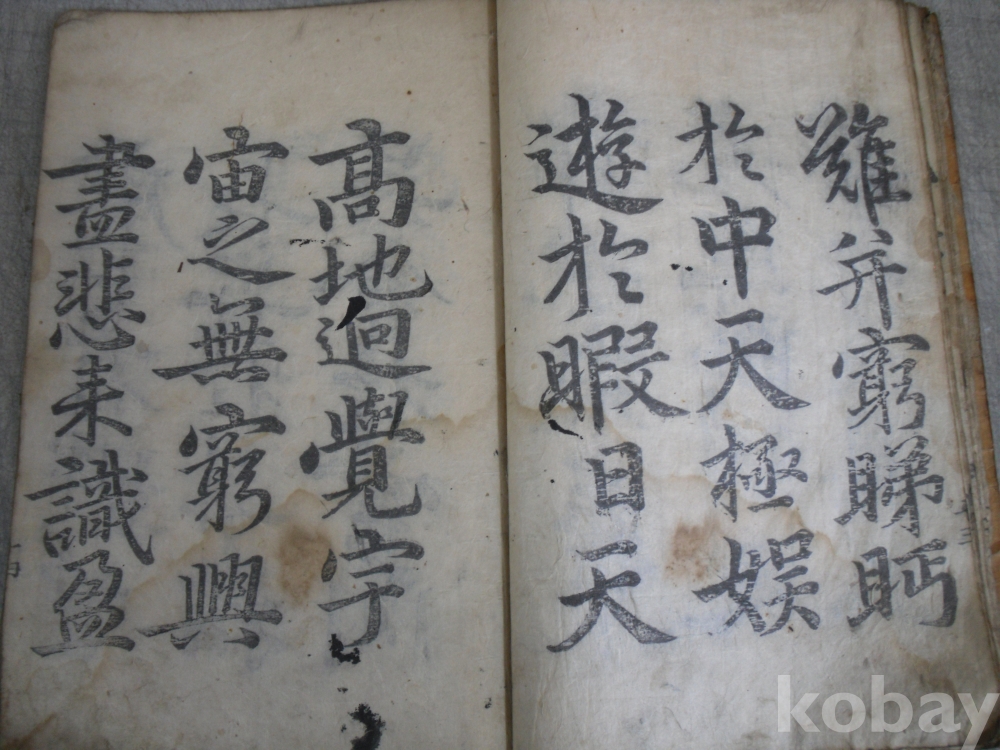 難并窮睇眄
於中天極娛
遊於暇日天
高地逈覺宇
宙之無窮興
盡悲来識盈
kobay